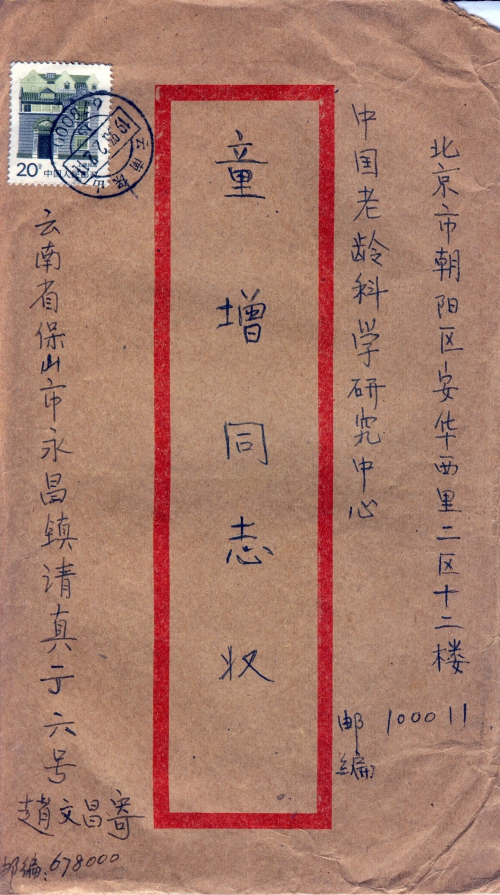 北京市朝阳区安华西里二区十二楼
中国老龄科学研究中心
邮编 100011
童增同志收
云南省保山市永昌镇清真寺六号
趙文昌寄
邮编:678000
20分
中国人民邮政
云南保山